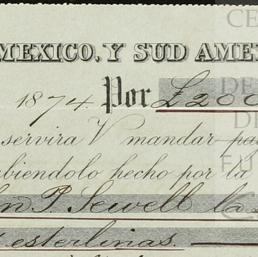 MEXICO. Y SUD AME
1874. Por £200
servira V mandar pa
biendolo hecho por la
n P. Sewell la
esterlinas.